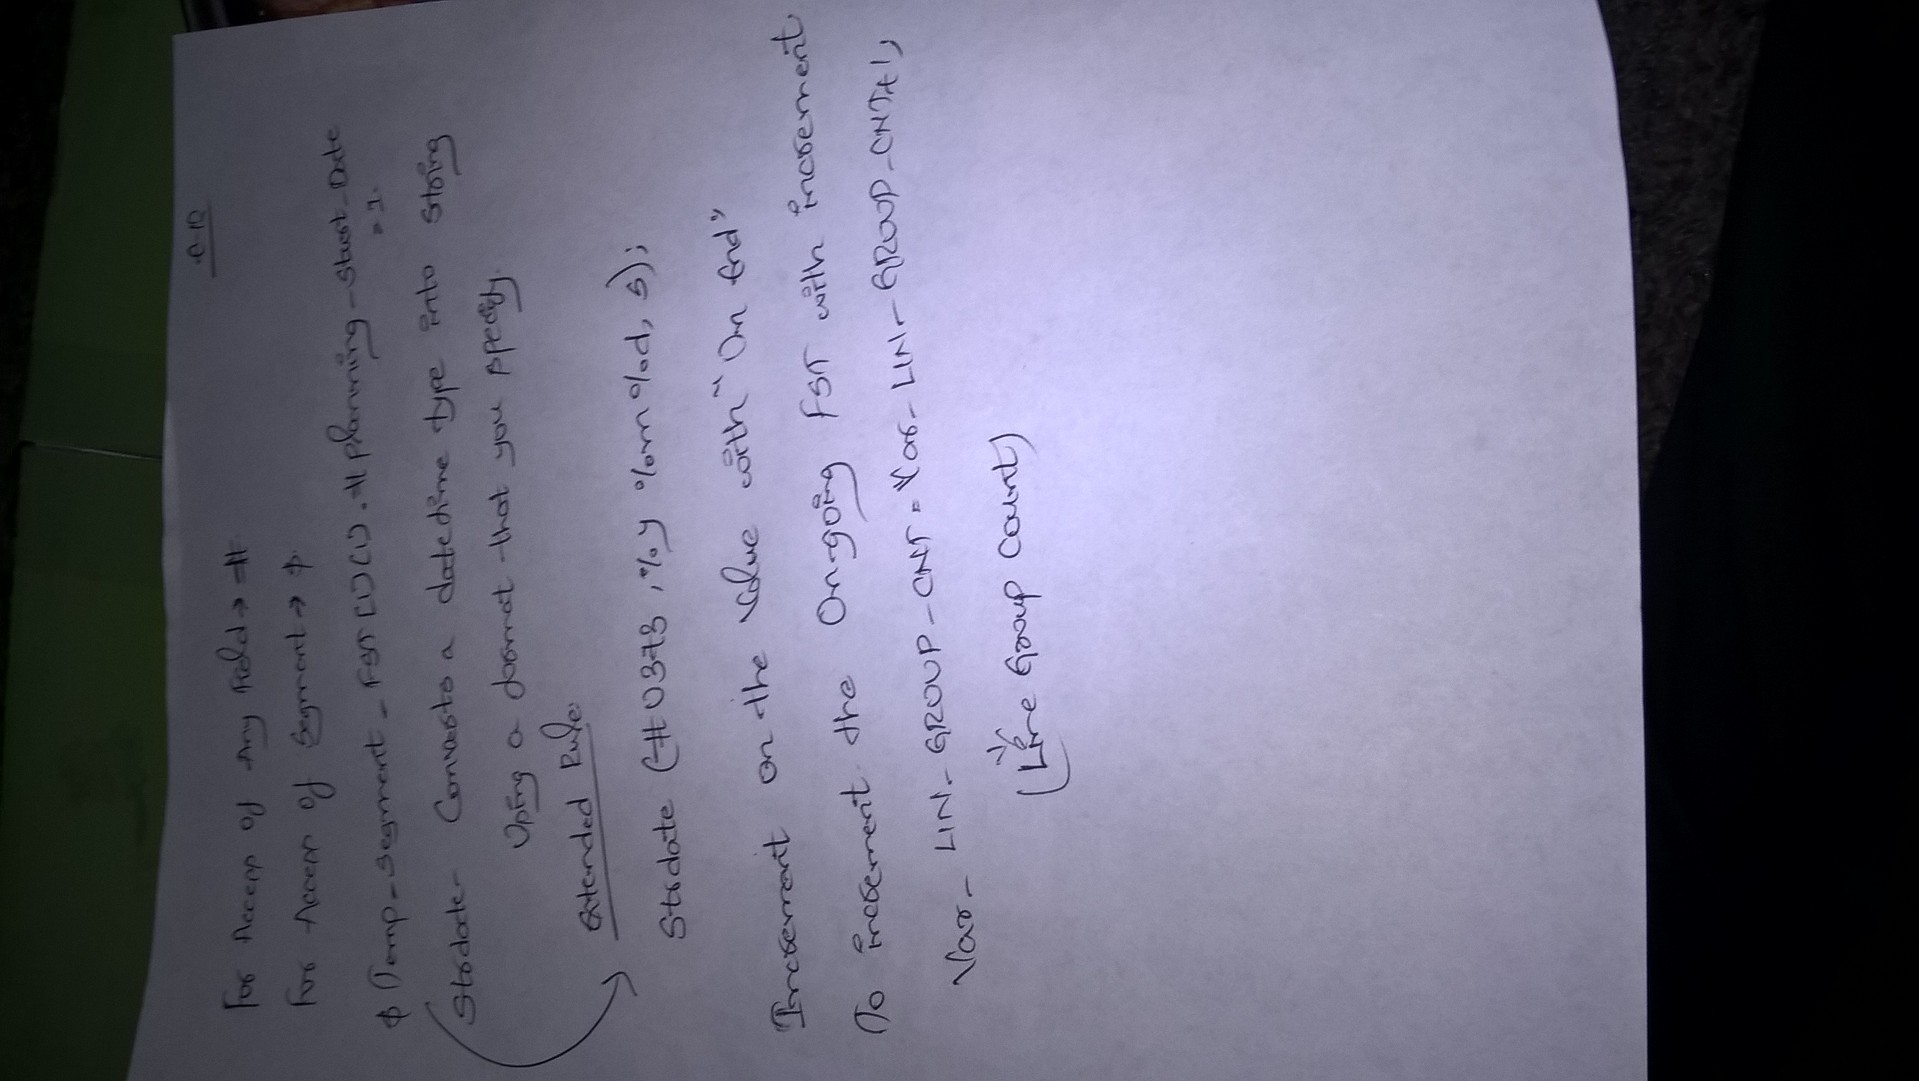 For Access of Any Field → #
For Access of Segment → $
$Temp_Segment_FST[1][1].#Planning_Start_Date
= 1.
Strdate - Converts a datetime type into string
Using a format that you specify.
Extended Rule:
Strdate (#0373, "%y %m %d, s);
Increment on the Value with "On End"
To increment the On-going FST with increment
Var_LIN_GROUP_CNT = Var_LIN_GROUP_CNT+1;
(Line Group Count)